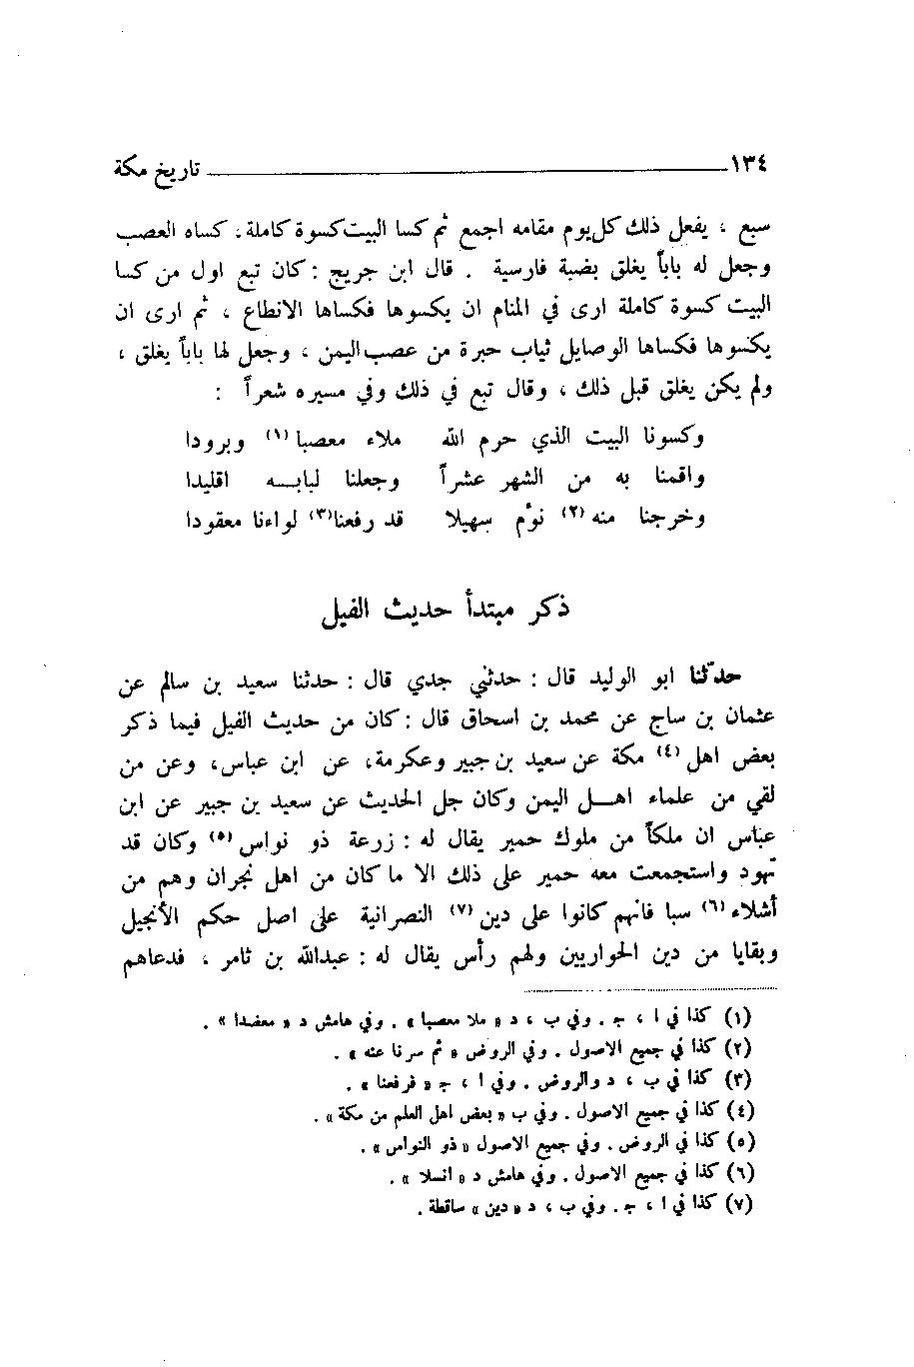 ١٣٤ تاريخ مكة
سبع ، يفعل ذلك كل يوم مقامه اجمع ثم كسا البيت كسوة كاملة ، كساه العصب
وجعل له باباً يغلق بضبة فارسية . قال ابن جريج : كان تبع اول من كسا
البيت كسوة كاملة ارى في المنام ان يكسوها فكساها الانطاع ، ثم ارى ان
يكسوها فكساها الوصايل ثياب حبرة من عصب اليمن ، وجعل لها باباً يغلق ،
ولم يكن يغلق قبل ذلك ، وقال تبع في ذلك وفي مسيره شعراً :
وكسونا البيت الذي حرم الله ملاء معصبا (١) وبرودا
واقمنا به من الشهر عشراً وجعلنا لبابه اقليدا
وخرجنا منه (٢) نؤم سهيلا قد رفعنا(٣) لواءنا معقودا
ذكر مبتدأ حديث الفيل
حدّثنا ابو الوليد قال : حدثني جدي قال : حدثنا سعيد بن سالم عن
عثمان بن ساج عن محمد بن اسحاق قال : كان من حديث الفيل فيما ذكر
بعض اهل (٤) مكة عن سعيد بن جبير وعكرمة، عن ابن عباس، وعن من
لقي من علماء اهــل اليمن وكان جل الحديث عن سعيد بن جبير عن ابن
عباس ان ملكاً من ملوك حمير يقال له : زرعة ذو نواس (٥) وكان قد
تهود واستجمعت معه حمير على ذلك الا ما كان من اهل نجران وهم من
أشلاء (٦) سبا فانهم كانوا على دين (٧) النصرانية على اصل حكم الأنجيل
وبقايا من دين الحواريين ولهم رأس يقال له : عبدالله بن ثامر ، فدعاهم
(١) كذا في ا ، ج . وفي ب ، د « ملا معصبا » . وفي هامش د « معضدا » .
(٢) كذا في جميع الاصول . وفي الروض « ثم سرنا عنه » .
(٣) كذا في ب ، د والروض . وفي ا ، ج « فرفعنا » .
(٤) كذا في جميع الاصول . وفي ب « بعض اهل العلم من مكة » .
(٥) كذا في الروض . وفي جميع الاصول « ذو النواس » .
(٦) كذا في جميع الاصول . وفي هامش د « انسلا » .
(٧) كذا في ا ، ج . وفي ب ، د « دين » ساقطة .